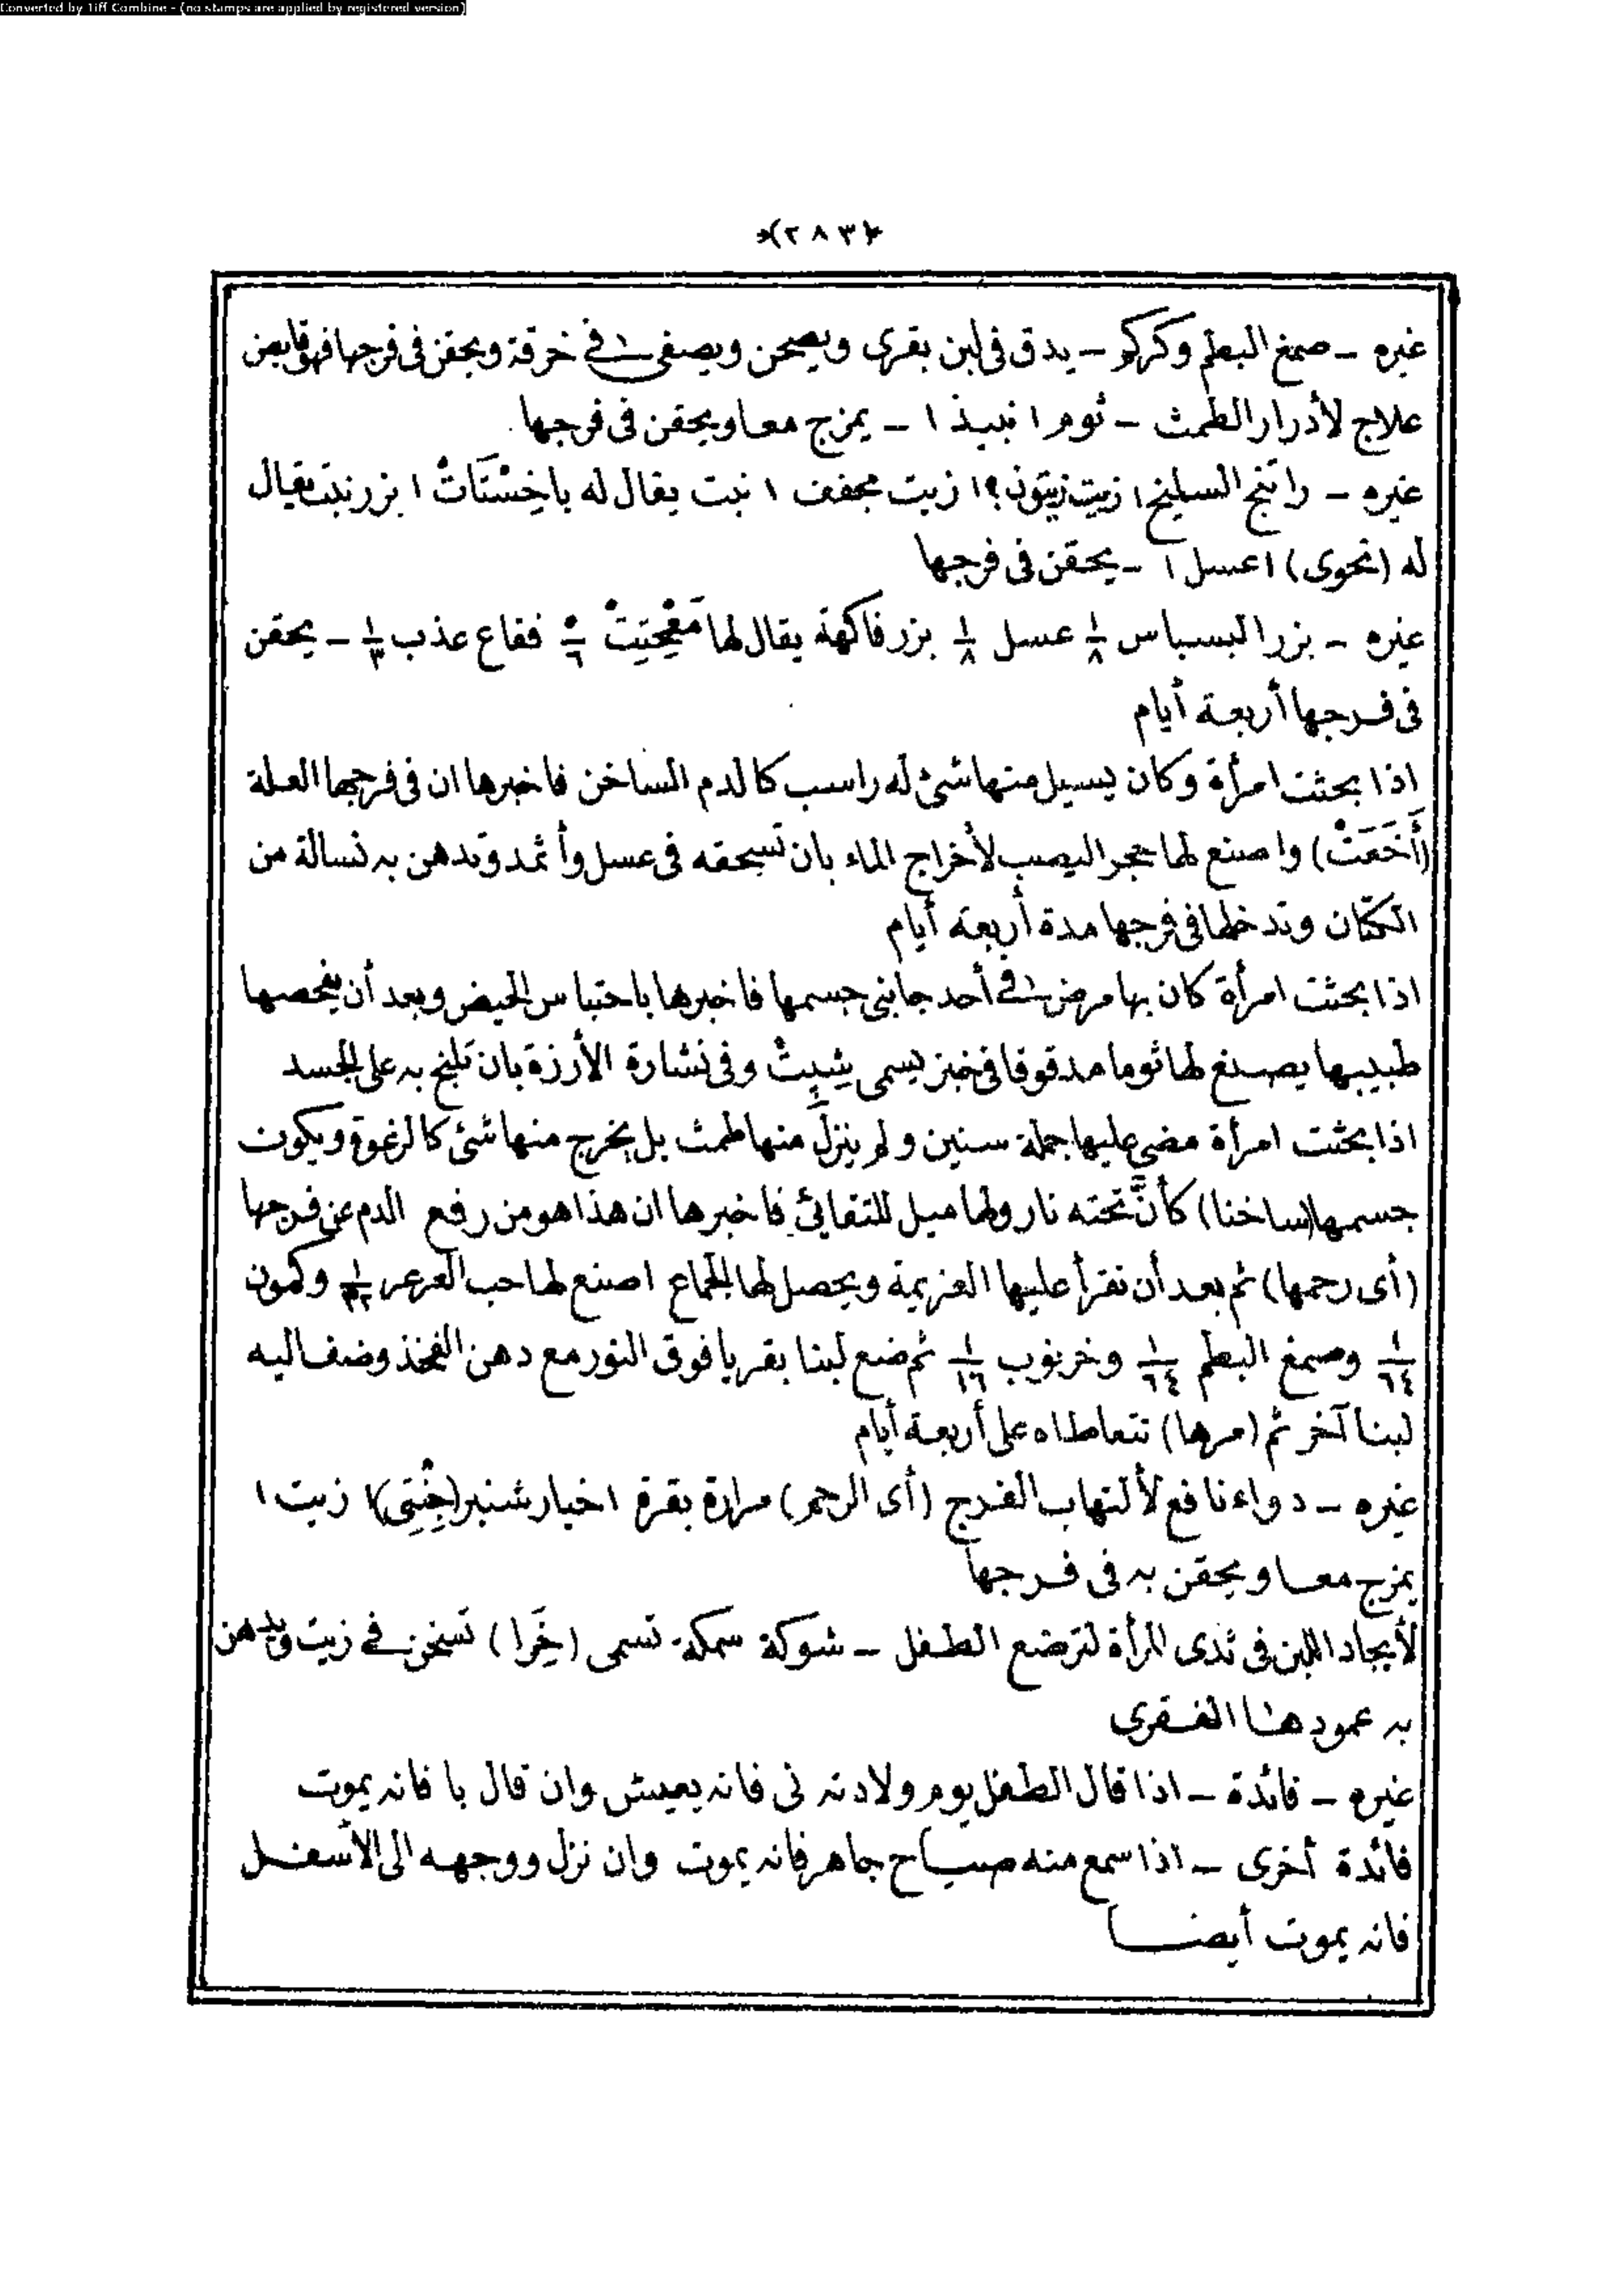 Converted by Tiff Combine - (no stamps are applied by registered version)
*(٢٨٣)*
غيره – صمغ البطم وكركم – يدق فى لبن بقرى ويصحن ويصفى فى خرقة ويحقن فى فرجها فهو قابض
علاج لأدرار الطمث – ثوم ١ نبيذ ١ – يمزج معا ويحقن فى فرجها
غيره – راتنج السليخ ١ زيت زيتون ؟ ١ زيت مجفف ١ نبت يقال له باخِسْتَاتْ ١ بزر نبت يقال
له (تحوى) ١ عسل ١ – يحقن فى فرجها
غيره – بزر البسباس ١/٨ عسل ١/٨ بزر فاكهة يقال لها ٥/٦ فقاع عذب ١/٣ – يحقن
فى فرجها أربعة أيام
اذا بحثت امرأة وكان يسيل منها شئ له راسب كالدم الساخن فاخبرها ان فى فرجها العلة
(أَخَعَتْ) واصنع لها حجر اليصب لأخراج الماء بان تسحقه فى عسل وأثمد وتدهن به نسالة من
الكتان وتدخلها فى فرجها مدة أربعة أيام
اذا بحثت امرأة كان بها مرض فى أحد جانبى جسمها فاخبرها باحتباس الحيض وبعد أن يفحصها
طبيبها يصنع لها ثوما مدقوقا فى خبز يسمى شِبِتْ وفى نشارة الأرزة بان تلبخ به على الجسد
اذا بحثت امرأة مضى عليها جملة سنين ولم ينزل منها طمث بل يخرج منها شئ كالرغوة ويكون
جسمها (ساخنا) كأنَّ تحته نار ولها ميل للتقائى فاخبرها ان هذا هو من رفع الدم عن فرجها
(أى رحمها) ثم بعد أن نقرأ عليها العزيمة ويحصل لها الجماع اصنع لها حب العرعر ١/٣٢ وكمون
١/٦٤ وصمغ البطم ١/٦٤ وخرنوب ١/١٦ ثم ضع لبنا بقريا فوق النور مع دهن الفخذ وضف اليه
لبنا آخر ثم (مرها) تتعاطاه على أربعة أيام
غيره – دواء نافع لألتهاب الفرج (أى الرحم) مرارة بقرة ١ خيار شنبر (جِنْتِى) ١ زيت ١
يمزج معا ويحقن به فى فرجها
لأيجاد اللبن فى ثدى المرأة لترضع الطفل – شوكة سمكة تسمى (خَِرا) تسخن فى زيت ويدهن
به عمودها الفقرى
غيره – فائدة – اذا قال الطفل يوم ولادته نى فانه يعيش وان قال با فانه يموت
فائدة أخرى – اذا سمع منه صياح جاهر فانه يموت وان نزل ووجهه الى الأسفل
فانه يموت أيضا